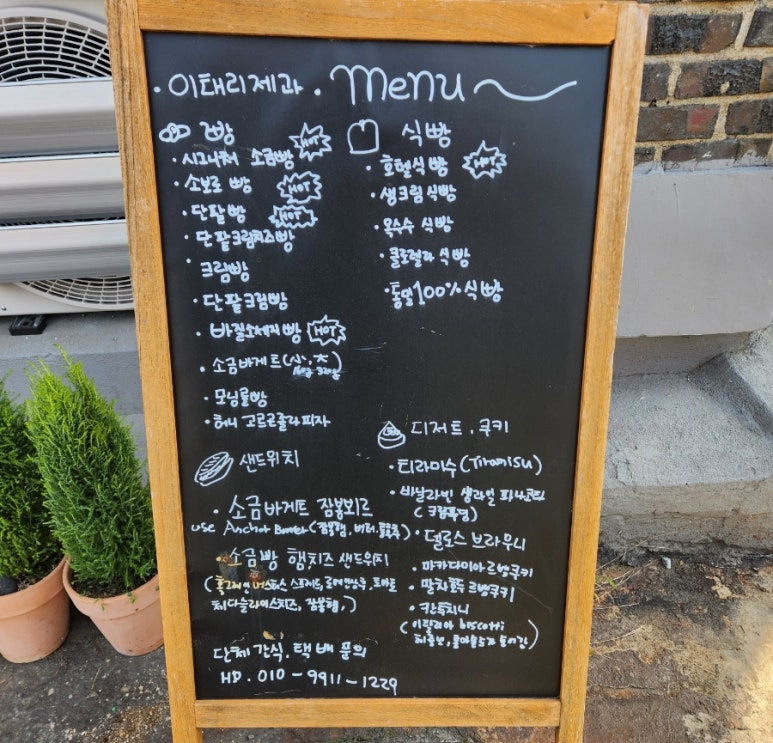 · 이태리제과 · Menu
빵
· 시그니처 소금빵 HOT
· 소보로 빵 HOT
· 단팥빵 HOT
· 단팥크림치즈빵
· 크림빵
· 단팥크림빵
· 바질소세지빵 HOT
· 소금바게트(小,大)
· 모닝롤빵
· 허니 고르곤졸라피자
식빵
· 호텔식빵 HOT
· 생크림식빵
· 옥수수 식빵
· 클로렐라 식빵
· 통밀100%식빵
샌드위치
· 소금바게트 잠봉뵈르
use Anchor Butter(잠봉햄, 버터,
· 소금빵 햄치즈 샌드위치
(홀그레인 머스타드 스프레드, 로메인상추, 토마토
체다슬라이스치즈, 잠봉햄,)
디저트. 쿠키
· 티라미수(Tiramisu)
· 바닐라빈 생라임
· 델로스 브라우니
· 마카다미아르뱅쿠키
· 말차 르뱅쿠키
· 칸투치니
(이탈리아 biscotti
단체간식. 택배 문의
HD. 010-9911-1229